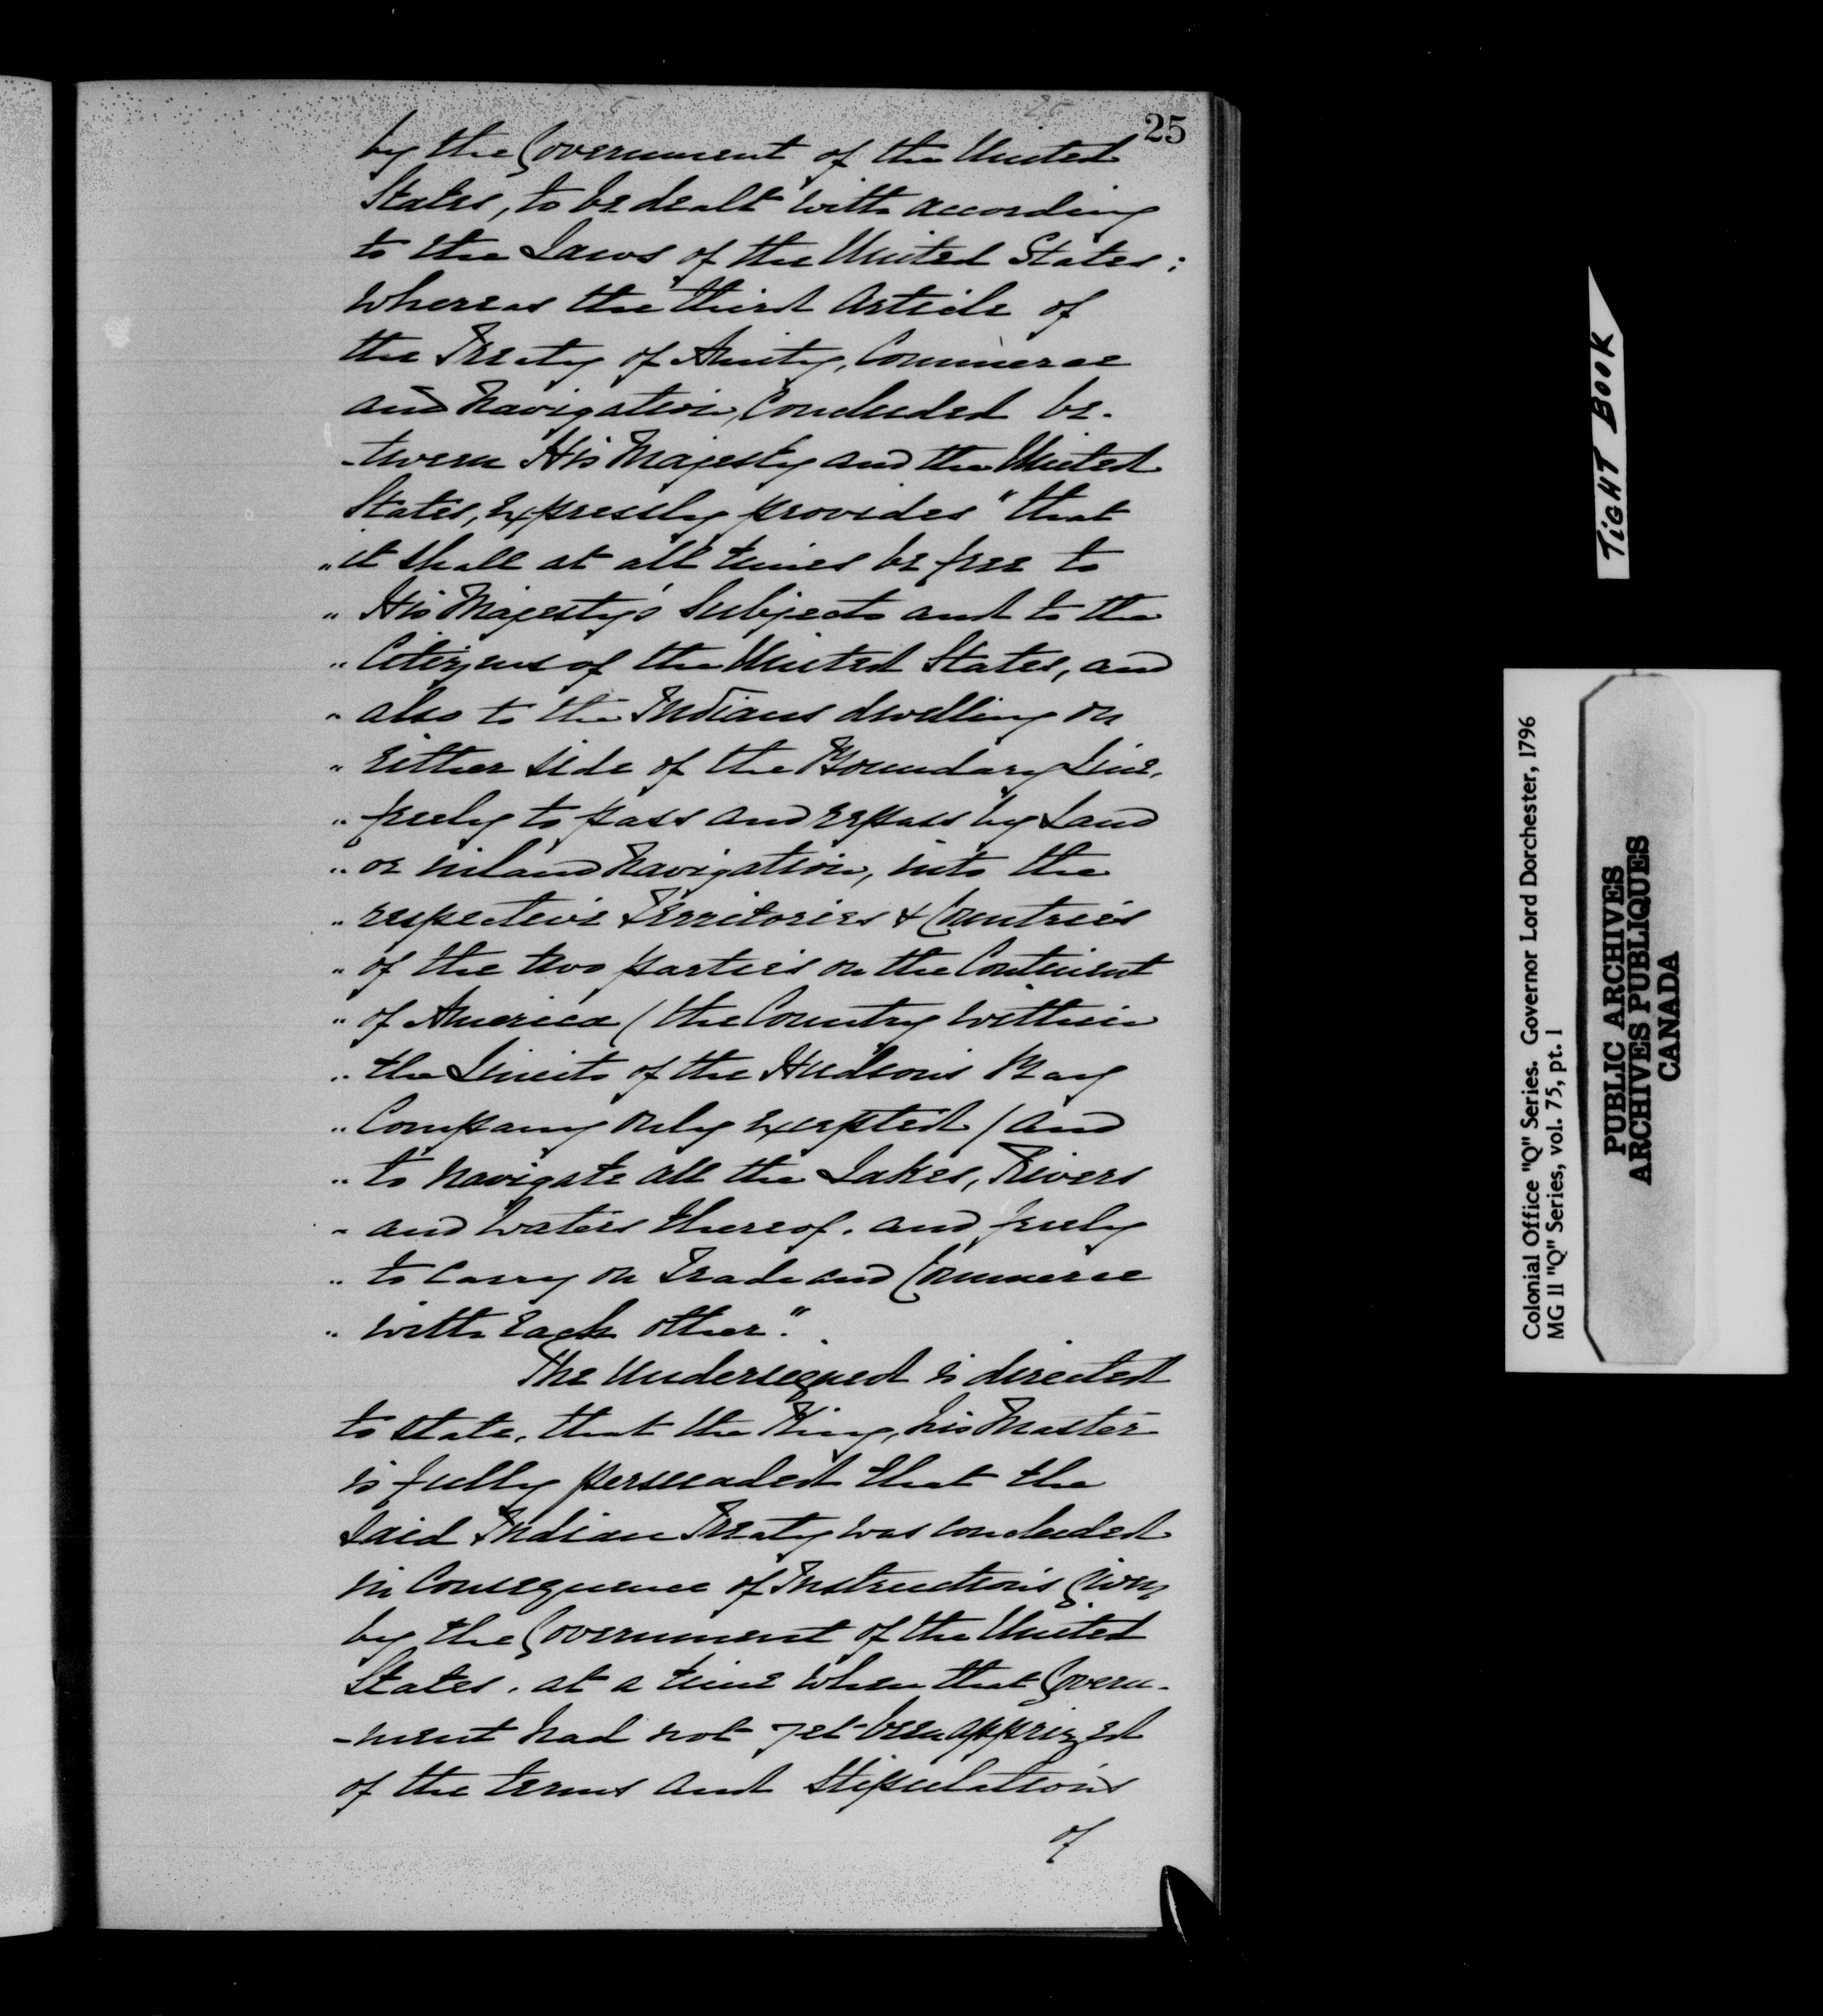 25
by the Government of the United
States, to be dealt with according
to the Laws of the United States:
Whereas the third Article of
the Treaty of Amity, Commerce
and Navigation, Concluded be-
-tween His Majesty and the United
States, expressly provides "that
"it shall at all times be free to
"His Majesty's Subjects and to the
"Citizens of the United States, and
"also to the Indians dwelling on
"either side of the Boundary Line,
"freely to pass and repass by Land
"or inland Navigation, into the
"respective Territories & Countries
"of the two parties on the Continent
"of America (the Country within
"the Limits of the Hudson's Bay
"Company only excepted) and
"to navigate all the Lakes, Rivers
"and waters thereof, and freely
"to carry on Trade and Commerce
"with each other."
The undersigned is directed
to state, that the King, his Master
is fully persuaded that the
said Indian Treaty was concluded
in Consequence of Instructions given
by the Government of the United
States, at a time when that Govern-
-ment had not yet been apprized
of the terms and stipulations
of
TiGHT BOOK
Colonial Office "Q" Series. Governor Lord Dorchester, 1796
MG 11 "Q" Series, vol. 75, pt. 1
PUBLIC ARCHIVES
ARCHIVES PUBLIQUES
CANADA